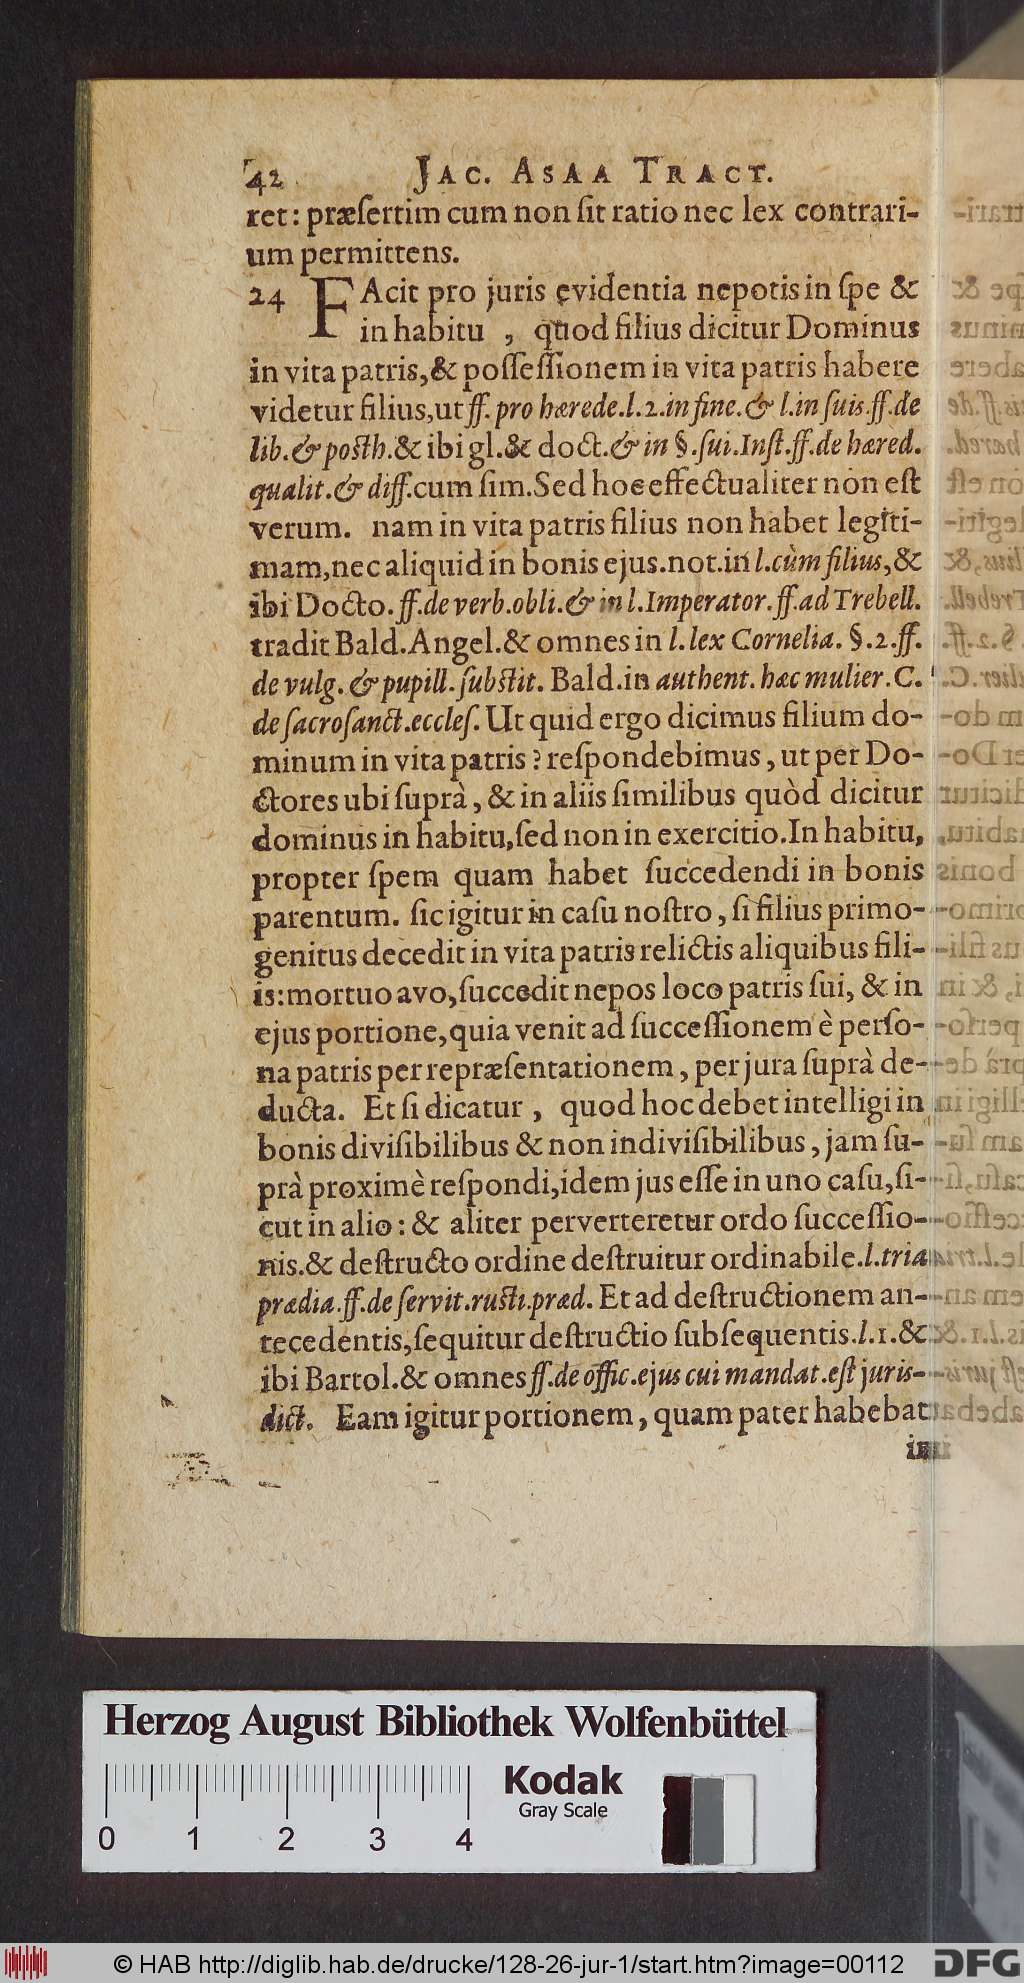 42 JAC. ASAA TRACT.
ret: præſertim cum non ſit ratio nec lex contrari-
um permittens.
24 FAcit pro juris evidentia nepotis in ſpe &
in habitu , quod filius dicitur Dominus
in vita patris, & poſſeſſionem in vita patris habere
videtur filius, ut ff. pro hærede. l. 2. in fine. & l. in ſuis. ff. de
lib. & poſth. & ibi gl. & doct. & in §. ſui. Inſt. ff. de hæred.
qualit. & diff. cum ſim. Sed hoc effectualiter non eſt
verum. nam in vita patris filius non habet legiti-
mam, nec aliquid in bonis ejus. not. in l. cùm filius, &
ibi Docto. ff. de verb. obli. & in l. Imperator. ff. ad Trebell.
tradit Bald. Angel. & omnes in l. lex Cornelia. §. 2. ff.
de vulg. & pupill. ſubſtit. Bald. in authent. hæc mulier. C.
de ſacroſanct. eccleſ. Ut quid ergo dicimus filium do-
minum in vita patris? reſpondebimus, ut per Do-
ctores ubi ſuprà, & in aliis ſimilibus quòd dicitur
dominus in habitu, ſed non in exercitio. In habitu,
propter ſpem quam habet ſuccedendi in bonis
parentum. ſic igitur in caſu noſtro, ſi filius primo-
genitus decedit in vita patris relictis aliquibus fili-
is: mortuo avo, ſuccedit nepos loco patris ſui, & in
ejus portione, quia venit ad ſucceſſionem è perſo-
na patris per repræſentationem, per jura ſuprà de-
ducta. Et ſi dicatur , quod hoc debet intelligi in
bonis diviſibilibus & non indiviſibilibus, jam ſu-
prà proximè reſpondi, idem jus eſſe in uno caſu, ſi-
cut in alio: & aliter perverteretur ordo ſucceſſio-
nis. & deſtructo ordine deſtruitur ordinabile. l. tria
prædia. ff. de ſervit. ruſti. præd. Et ad deſtructionem an-
tecedentis, ſequitur deſtructio ſubſequentis. l. 1. &
ibi Bartol. & omnes ff. de offic. ejus cui mandat. eſt juris-
dict. Eam igitur portionem, quam pater habebat
Herzog August Bibliothek Wolfenbüttel
Kodak
Gray Scale
0 1 2 3 4
© HAB http://diglib.hab.de/drucke/128-26-jur-1/start.htm?image=00112
DFG